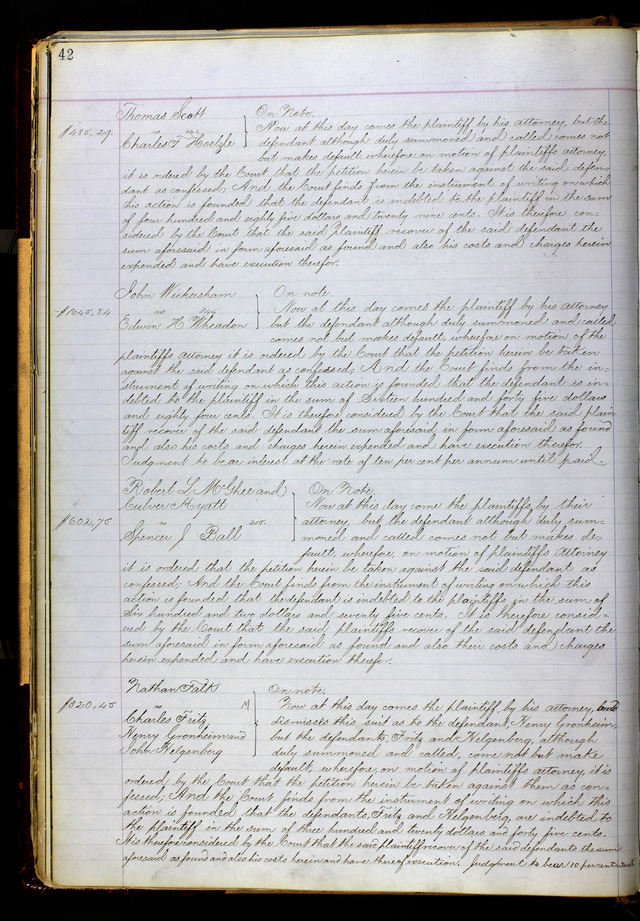 42
Thomas Scott On Note.
$485,29. vs Now at this day comes the plaintiff by his attorney, but the
Charles F. Hoelzle defendant although duly summoned and called comes not
but makes default, wherefore, on motion of plaintiffs attorney,
it is ordered by the Court that the petition herein be taken against the said defen-
dant as confessed; And the Court finds from the instrument of writing on which
this action is founded that the defendant is indebted to the plaintiff in the sum
of four hundred and eighty five dollars and twenty nine cents. It is therefore con-
sidered by the Court that the said plaintiff recover of the said defendant the
sum aforesaid in form aforesaid as found and also his costs and charges herein
expended and have execution therefor.
John Wickersham On note.
$1645,84 vs Now at this day comes the plaintiff by his attorney
Edwin H. Wheadon but the defendant although duly summoned and called
comes not but makes default, wherefore on motion of the
plaintiffs attorney it is ordered by the Court that the petition herein be taken
against the said defendant as confessed; And the Court finds from the in-
strument of writing on which this action is founded that the defendant is in-
debted to the plaintiff in the sum of Sixteen hundred and forty five dollars
and eighty four cents. It is therefore considered by the Court that the said plain
tiff recover of the said defendant the sum aforesaid, in form aforesaid as found
and also his costs and charges herein expended and have execution therefor.
Judgment to bear interest at the rate of ten per cent per annum until paid.
Robert L. McGhee and On Note.
Culver Hyatt Now at this day come the plaintiffs, by their
$602,75 vs attorney, but the defendant although duly sum-
Spencer J. Ball moned and called comes not but makes de-
fault, wherefore, on motion of plaintiffs Attorney
it is ordered that the petition herein be taken against the said defendant as
confessed; And the Court finds from the instrument of writing on which this
action is founded that the defendant is indebted to the plaintiffs in the sum of
Six hundred and two dollars and seventy five cents. It is therefore consid-
ered by the Court that the said plaintiffs recover of the said defendant the
sum aforesaid in form aforesaid as found and also their costs and charges
herein expended and have execution therefor.
Nathan Falk On note.
$320,45 vs M Now at this day comes the plaintiff, by his attorney, and
Charles Fritz dismisses this suit as to the defendant, Henry Gronheim
Henry Gronheim and but the defendants, Fritz and Helgenberg, although
John Helgenberg duly summoned and called, come not but make
default, wherefore, on motion of plaintiffs attorney, it is
ordered by the Court that the petition herein be taken against them as con-
fessed; And the Court finds from the instrument of writing on which this
action is founded that the defendants, Fritz and Helgenberg, are indebted to
the plaintiff in the sum of three hundred and twenty dollars and forty five cents.
It is therefore considered by the Court that the said plaintiff recover of the said defendants the sum
aforesaid as found and also his costs herein and have thereof execution. Judgment to bear 10 per cent